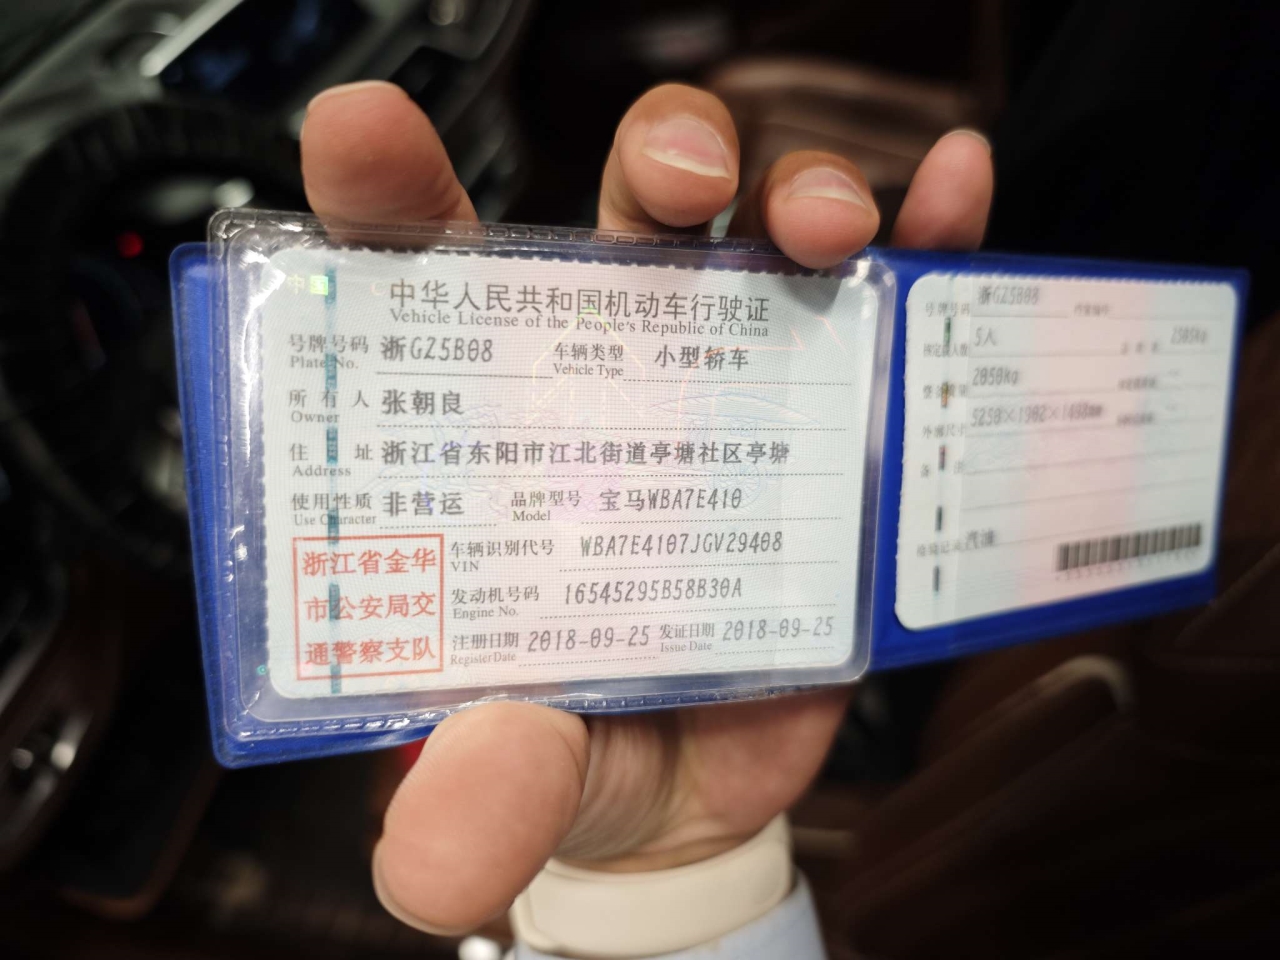 中国
中华人民共和国机动车行驶证
Vehicle License of the People's Republic of China
号牌号码 浙GZ5B08 车辆类型 小型轿车
Plate No. Vehicle Type
所有人 张朝良
Owner
住址 浙江省东阳市江北街道亭塘社区亭塘
Address
使用性质 非营运 品牌型号 宝马WBA7E410
Use Character Model
浙江省金华
市公安局交
通警察支队
车辆识别代号 WBA7E4107JGV29408
VIN
发动机号码 16545295B58B30A
Engine No.
注册日期 2018-09-25 发证日期 2018-09-25
Register Date Issue Date
号牌号码 浙GZ5B08
5人
2050kg
外廓尺寸
备注
汽油